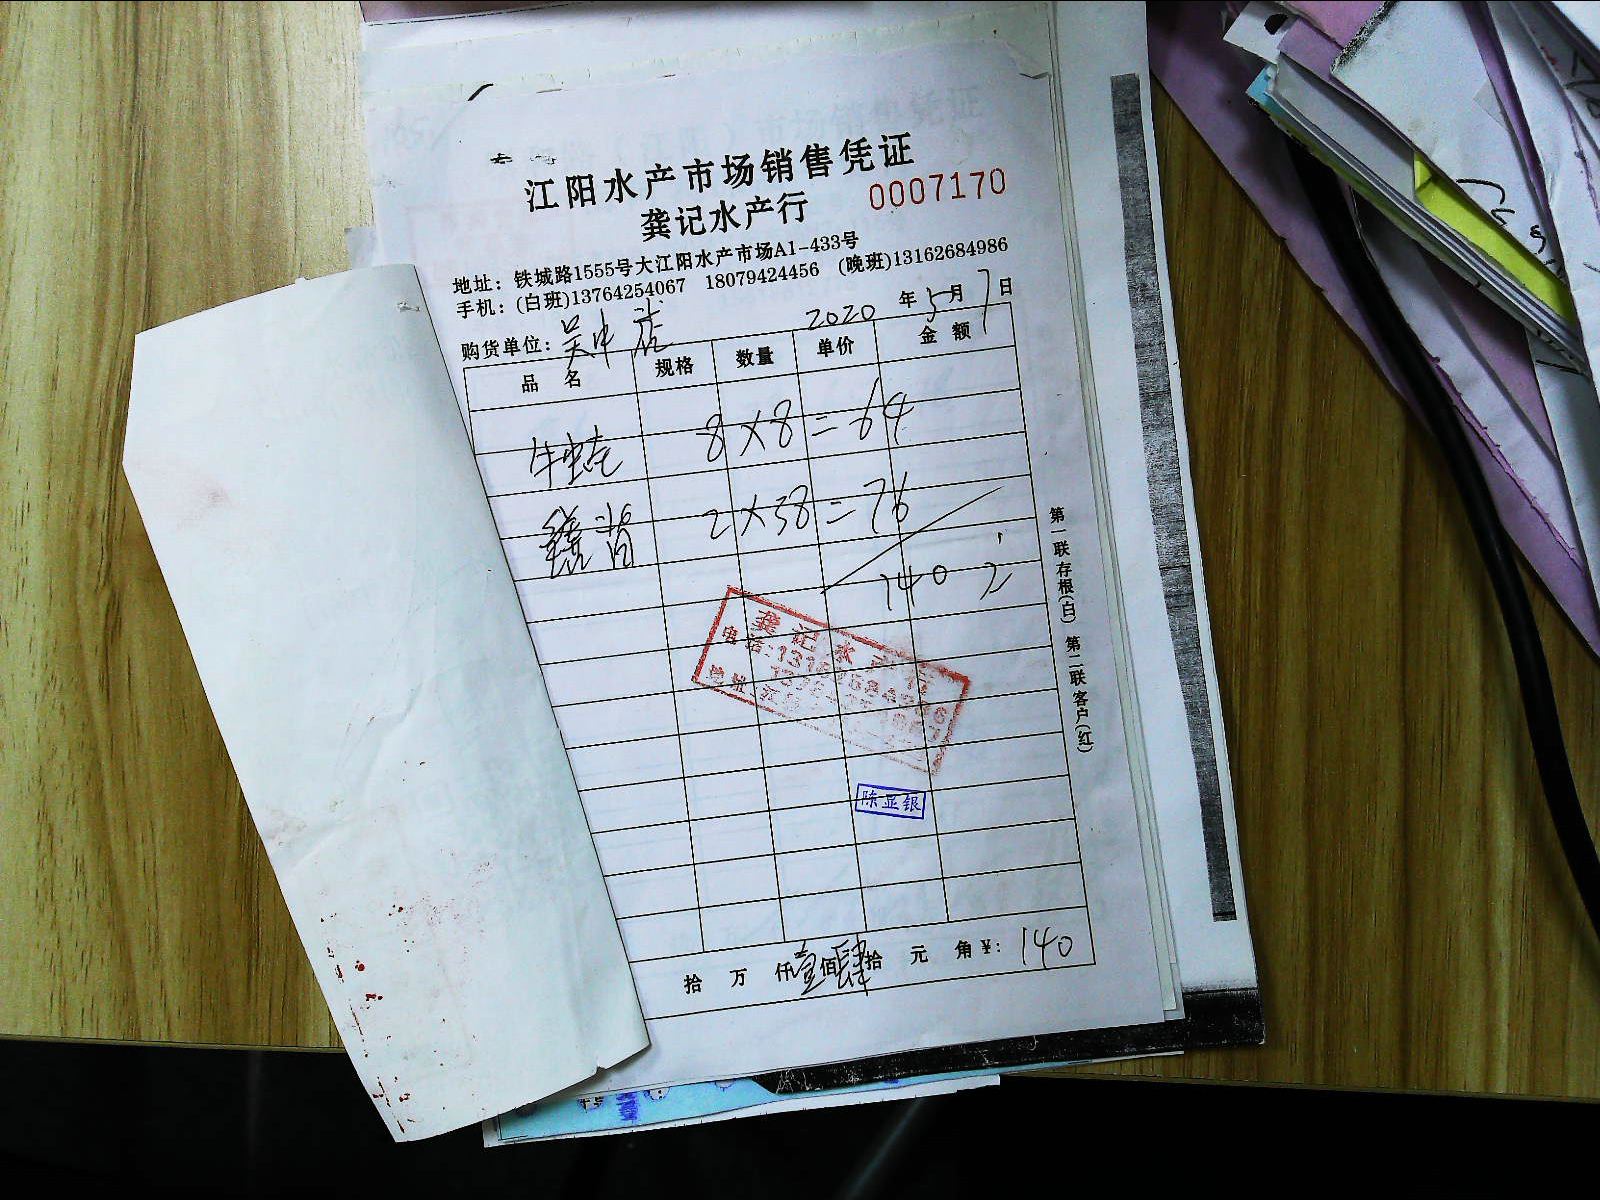 江阳水产市场销售凭证
龚记水产行 0007170
地址：铁城路1555号大江阳水产市场A1-433号
手机：(白班)13764254067 18079424456 (晚班)13162684986
购货单位：吴中店 2020 年 5 月 7 日
品 名 规格 数量 单价 金 额
牛蛙 8×8=64
2×38=76
140
龚记水产行
陈显银
拾 万 仟 壹 佰 肆 拾 元 角 ¥: 140
第一联存根(白) 第二联客户(红)